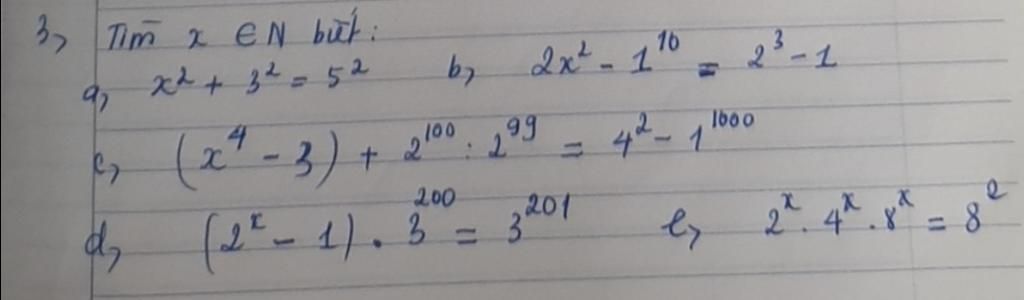 3, Tìm x ∈ N biết:
a, x² + 3² = 5² b, 2x² - 1¹⁰ = 2³ - 1
c, (x⁴ - 3) + 2¹⁰⁰ : 2⁹⁹ = 4² - 1¹⁰⁰⁰
d, (2ˣ - 1) . 3²⁰⁰ = 3²⁰¹ e, 2ˣ . 4ˣ . 8ˣ = 8²